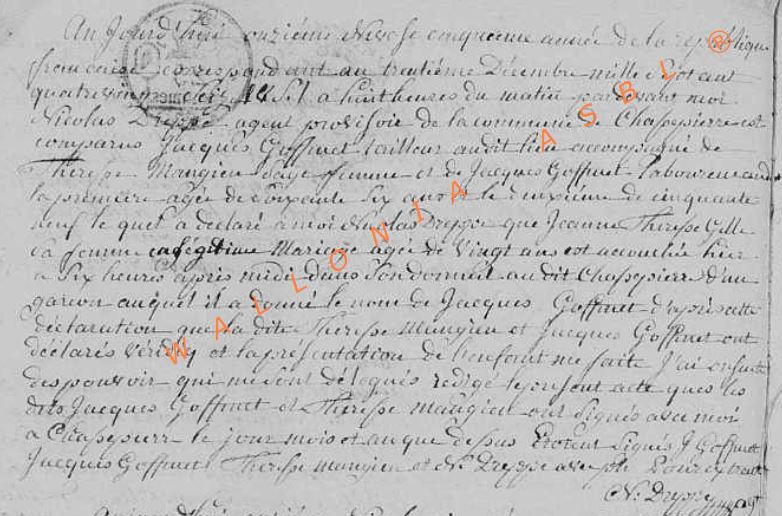 An Jourd'huy onzième Nivose cinquième année de la republique
francaise correspondant au trentième Décembre mille sept cent
quatrevingt Seize V.St. à huit heures du matin pardevant moi
Nicolas Dreppe agent provisoir de la commune de Chassepierre est
comparus Jacques Goffinet tailleur audit lieu accompagné de
Therese Mangien sage femme et de Jacques Goffinet laboureur
la première agée de soixante Six ans et le deuxième de cinquante
neuf le quel a déclaré à moi Nicolas Dreppe que Jeanne Therese Gille
Sa femme en légitime Mariage agée de Vingt ans est accouchée hier
a Six heures après midi dans Son domicil au dit Chassepierre d'un
garcon auquel il a donné le nom de Jacques Goffinet d'après cette
déclaration que la dite Therese Mangien et Jacques Goffinet ont
déclarés et la présentation de l'enfant me faite J'ai ensuite
des pouvoir qui me Sont délégués redigé le present acte que les
dits Jacques Goffinet et Therese mangien ont Signés avec moi
a Chassepierre le jour mois et an que dessus Etoient Signés J Goffinet
Jacques Goffinet Therese mangien et N. Dreppe Pour extrait
N. Dreppe
WALLONIA ASBL ®